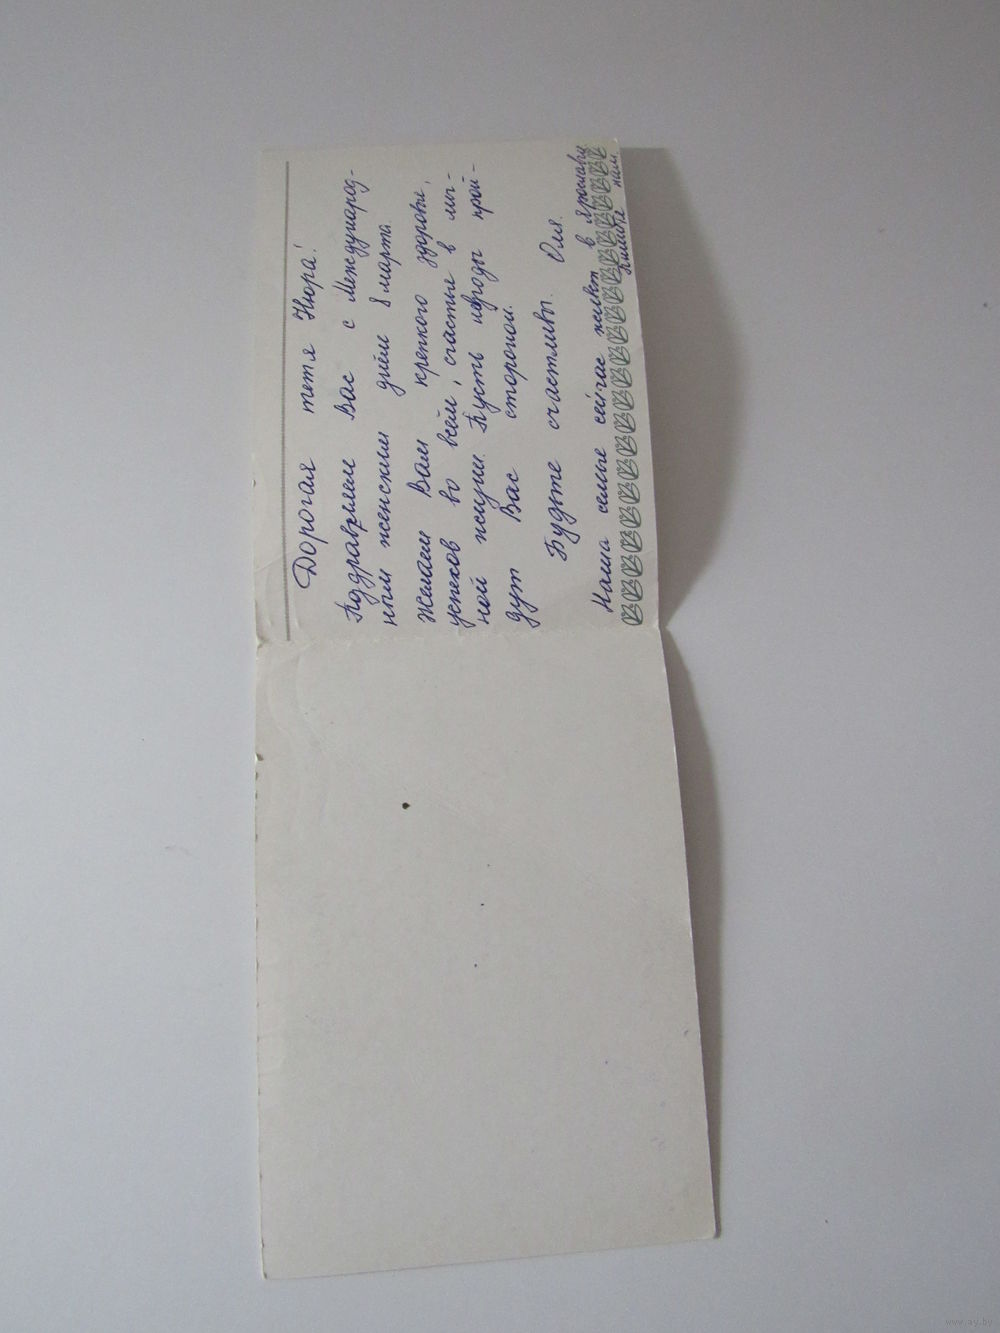 Дорогая тетя Нюра!
Поздравляем Вас с Международ-
ным женским днём 8 марта.
Желаем Вам крепкого здоровье,
успехов во всём, счастье в лич-
ной жизни. Пусть невзгоды прой-
дут Вас стороной.
Будьте счастливы. Оля.
Наша семья сейчас живёт в
Пишите нам.
www.ay.by